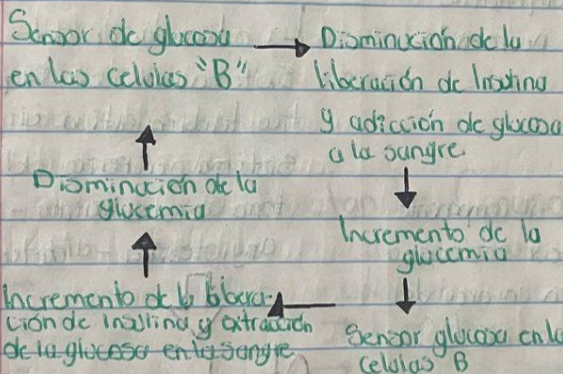 Sensor de glucosa
en las celulas "B"
Disminución de la
liberación de Insulina
y adicción de glucosa
a la sangre
Incremento de la
glucemia
Sensor glucosa en la
celulas B
Incremento de la libera-
ción de insulina y extracción
de la glucosa en la sangre
Disminución de la
glucemia